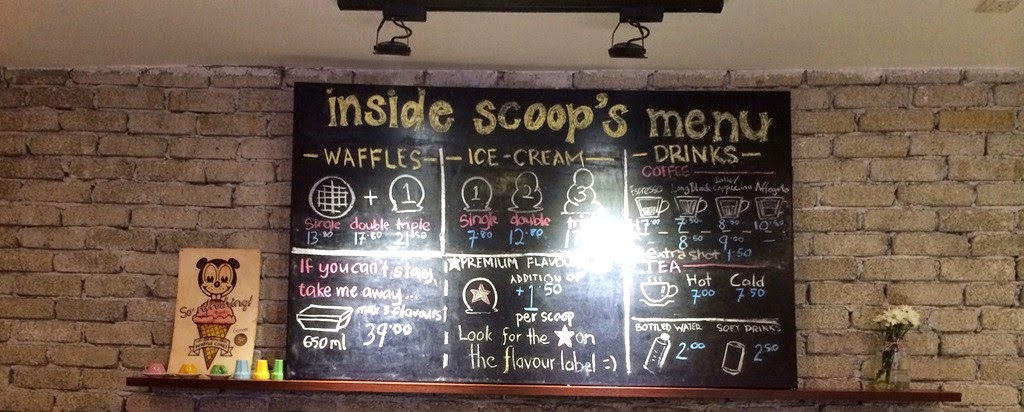 inside scoop's menu
- WAFFLES -
+ 1
single double triple
13.80 17.80 21.50
If you can't stay,
take me away...
max 3 flavours
650ml 39.00
- ICE-CREAM -
1 2 3
single double
7.80 12.80
PREMIUM FLAVOU
ADDITION OF
+1.50
per scoop
Look for the ★ on
the flavour label =)
- DRINKS -
COFFEE
Espresso Long Black Latte/ Cappuccino Affogato
7.00 7.50 8.50 10.50
- 8.50 9.00 -
extra shot 1.50
TEA
Hot Cold
7.00 7.50
BOTTLED WATER SOFT DRINKS
2.00 2.50